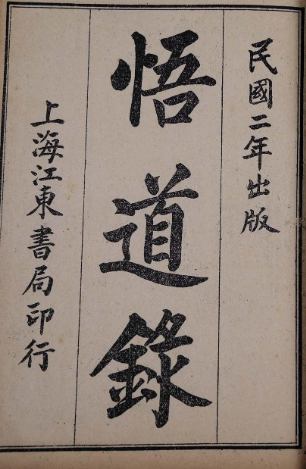 民國二年出版
悟道錄
上海江東書局印行